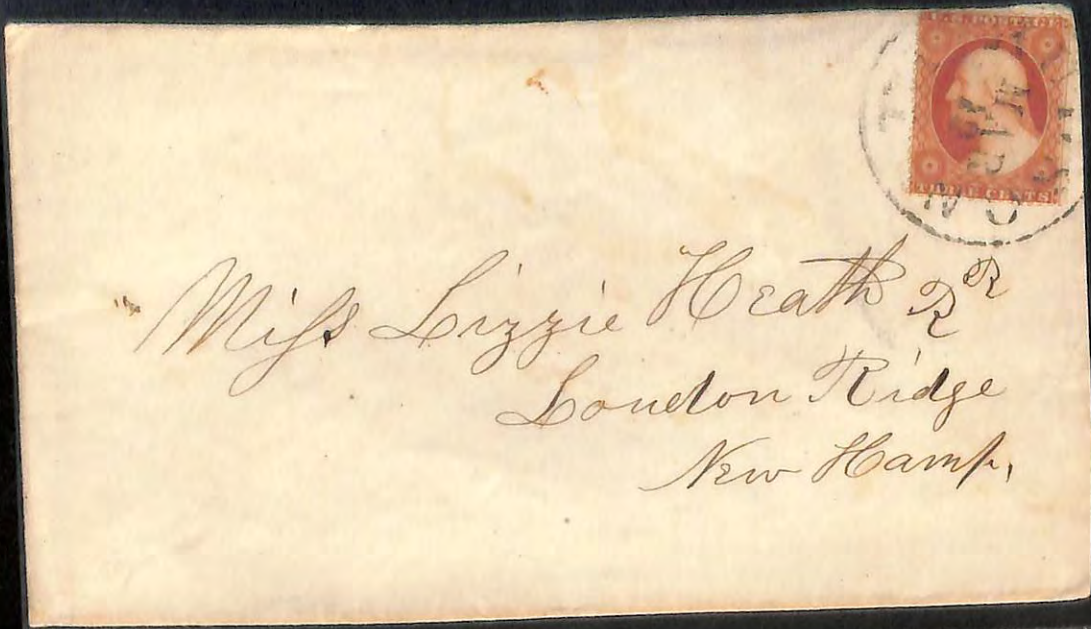 U.S. POSTAGE
MAR
THREE CENTS
Miss Lizzie Heath R R
Loudon Ridge
New Hamp.